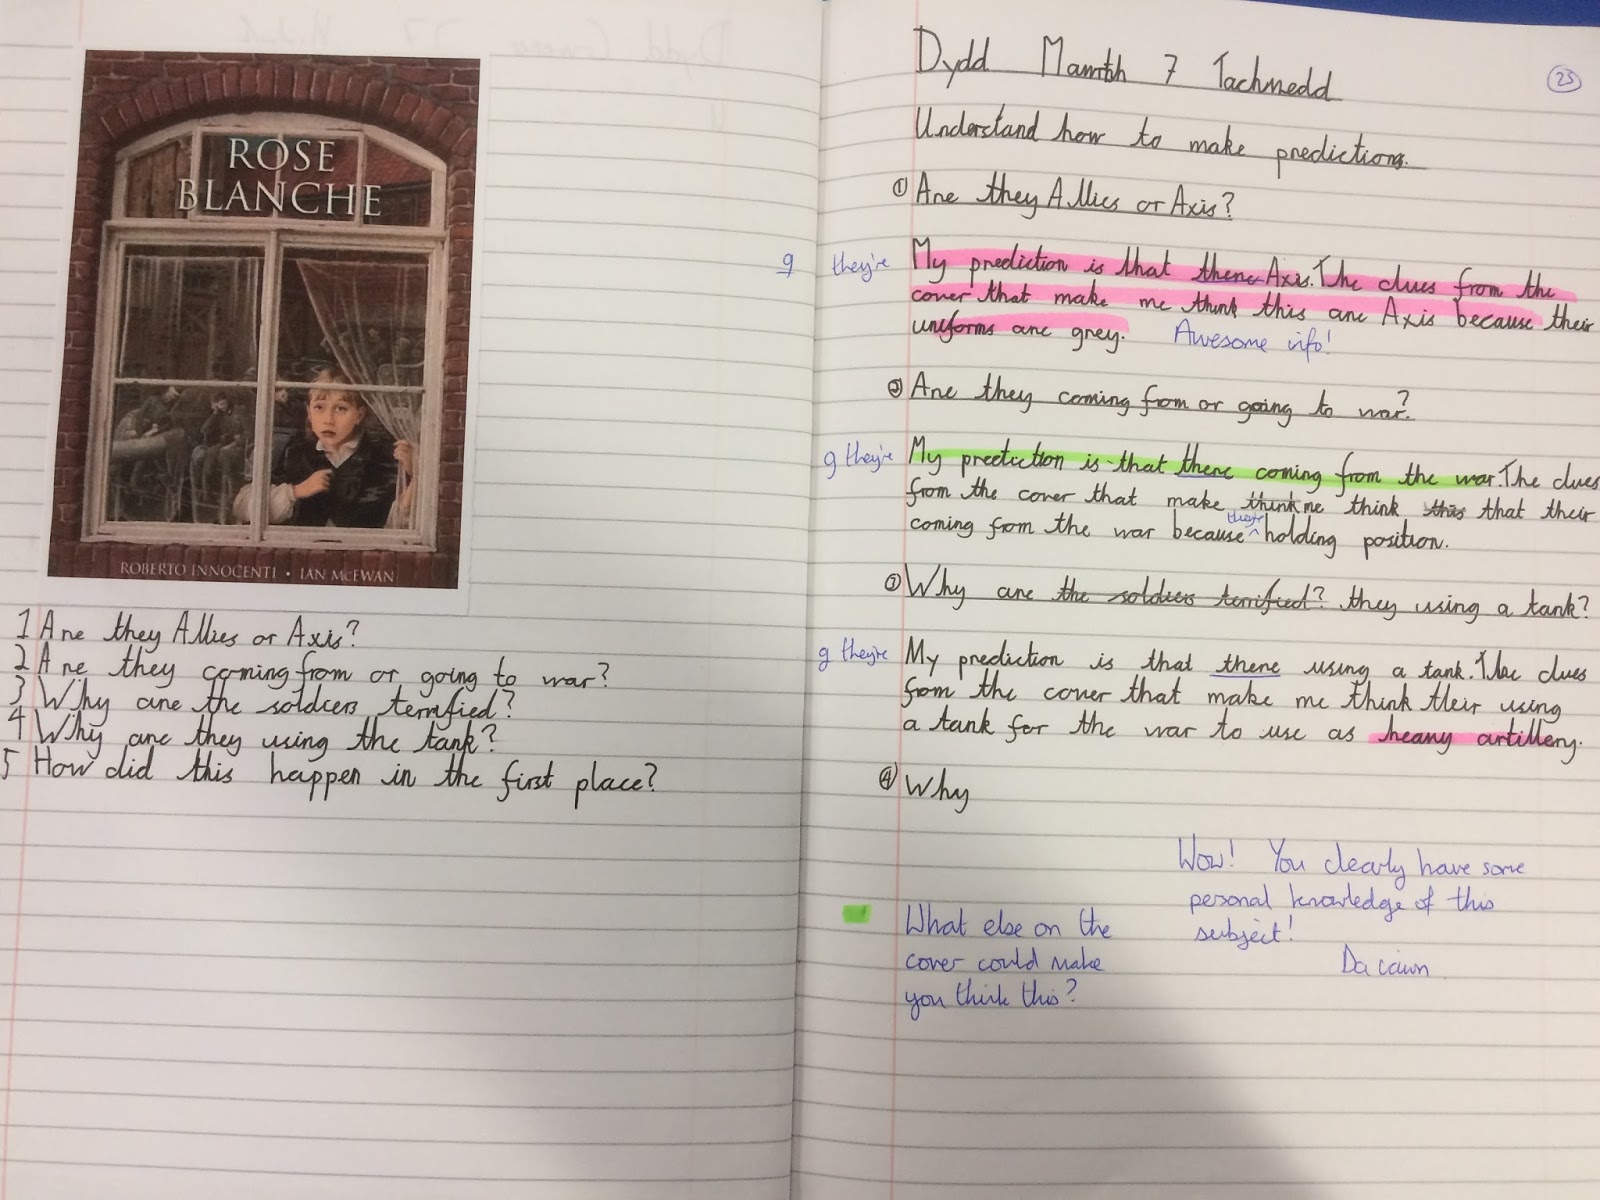 ROSE
BLANCHE
ROBERTO INNOCENTI • IAN McEWAN
1 Are they Allies or Axis?
2 Are they coming from or going to war?
3 Why are the soldiers terrafied?
4 Why are they using the tank?
5 How did this happen in the first place?
Dydd Mawrth 7 Tachnedd
23
Understand how to make predictions.
① Are they Allies or Axis?
g they're My prediction is that there Axis. The clues from the
cover that make me think this are Axis because their
uniforms are grey. Awesome info!
② Are they coming from or going to war?
g they're My prediction is that there coming from the war. The clues
from the cover that make think me think this that their
coming from the war because they're holding position.
③ Why are the soldiers terrified? they using a tank?
g they're My prediction is that there using a tank. The clues
from the cover that make me think their using
a tank for the war to use as heavy artillery.
④ Why
Wow! You clearly have some
personal knowledge of this
subject!
Da iawn
What else on the
cover could make
you think this?